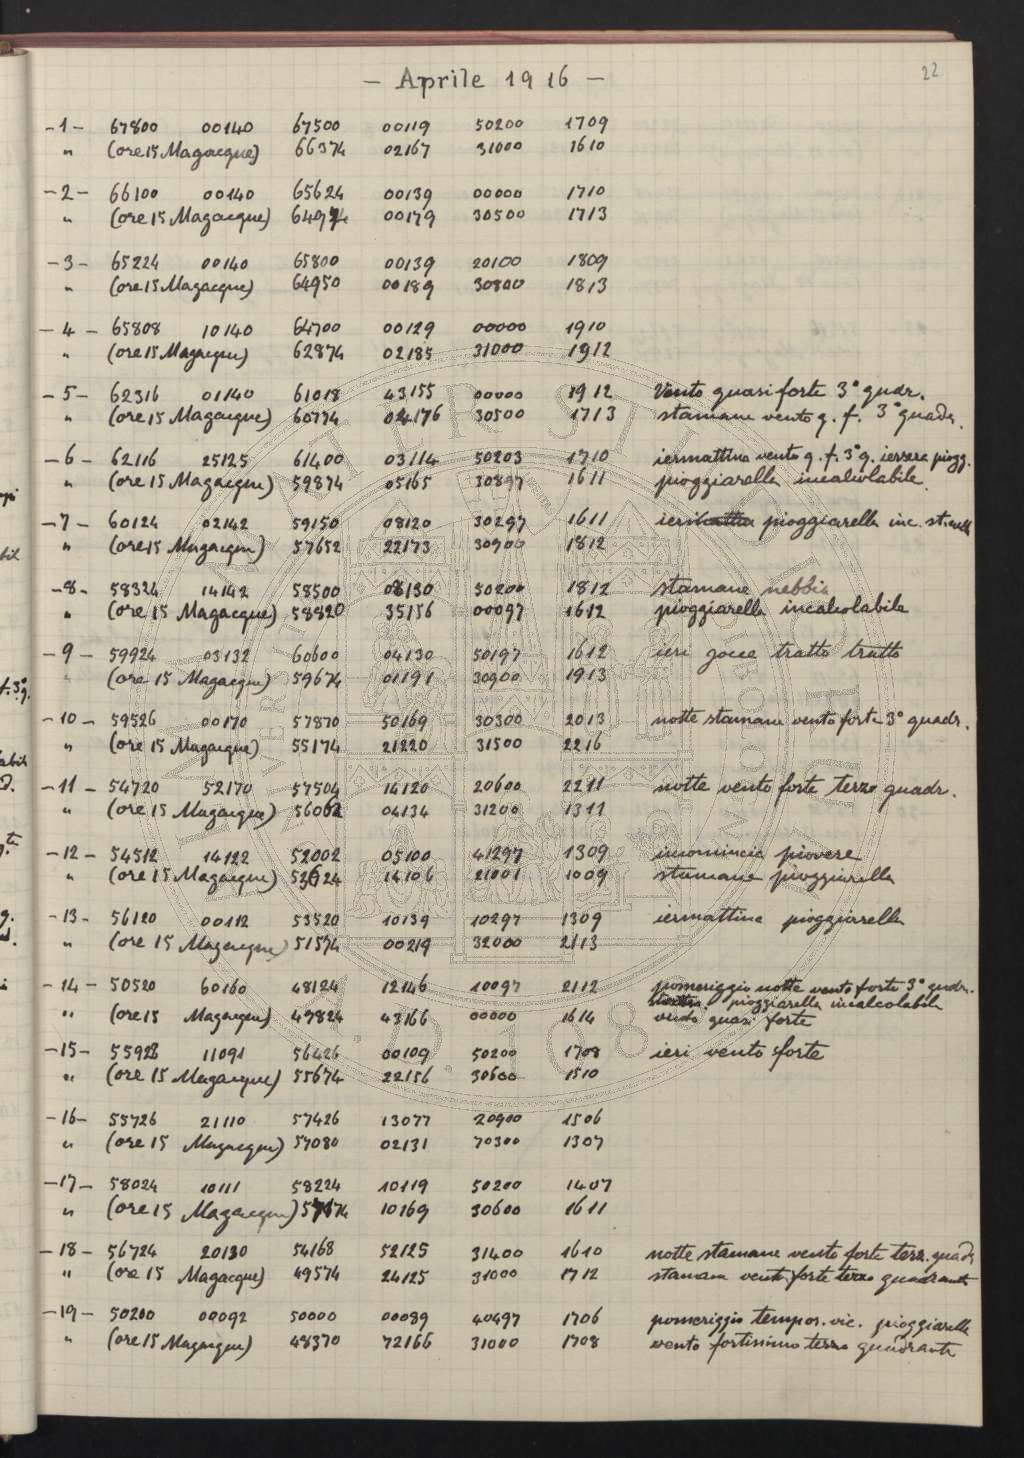 22
- Aprile 1916 -
-1- 67800 00140 67500 00119 50200 1709
" (ore 15 Magacque) 66374 02167 31000 1610
-2- 66100 00140 65624 00139 00000 1710
" (ore 15 Magacque) 64974 00179 30500 1713
-3- 65224 00140 65800 00139 20100 1809
" (ore 15 Magacque) 64950 00189 30800 1813
-4- 65808 10140 64700 00129 00000 1910
" (ore 15 Magacque) 62874 02185 31000 1912
-5- 62316 01140 61018 43155 00000 1912 Vento quasi forte 3° quadr.
" (ore 15 Magacque) 60774 02176 30500 1713 stamane vento q. f. 3° quadr.
-6- 62116 25125 61400 03114 50203 1710 iermattina vento q. f. 3° q. iersera piogg.
" (ore 15 Magacque) 59874 05165 30897 1611 pioggiarella incalcolabile
-7- 60124 02142 59150 08120 30297 1611 ieri pioggiarella inc.
" (ore 15 Magacque) 57652 22173 30900 1812
-8- 58324 14142 58500 08130 50200 1812 stamane nebbia
" (ore 15 Magacque) 58820 35156 00097 1612 pioggiarella incalcolabile
-9- 59924 03132 60600 04130 50197 1612 ieri gocce tratto tratto
" (ore 15 Magacque) 59674 01191 30900 1913
-10- 59526 00170 57870 50169 30300 2013 notte stamane vento forte 3° quadr.
" (ore 15 Magacque) 55174 21220 31500 2216
-11- 54720 52170 57504 14120 20600 2211 notte vento forte terzo quadr.
" (ore 15 Magacque) 56062 04134 31200 1311
-12- 54512 14122 52002 05100 41297 1309 incomincia piovere
" (ore 15 Magacque) 52624 14106 21001 1009 stamane pioggiarella
-13- 56120 00112 53520 10139 10297 1309 iermattina pioggiarella
" (ore 15 Magacque) 51574 00219 32000 2113
-14- 50520 60160 48124 12146 10097 2112 pomeriggio notte vento forte 3° quadr.
pioggiarella incalcolabile
" (ore 15 Magacque) 49824 43166 00000 1614 vento quasi forte
-15- 55928 11091 56426 00109 50200 1708 ieri vento forte
" (ore 15 Magacque) 55674 22156 30600 1510
-16- 55726 21110 57426 13077 20900 1506
" (ore 15 Magacque) 57080 02131 70300 1307
-17- 58024 10111 58224 10119 50200 1407
" (ore 15 Magacque) 57174 10169 30600 1611
-18- 56724 20130 54168 52125 31400 1610 notte stamane vento forte terz. quadr
" (ore 15 Magacque) 49574 24125 31000 1712 stamane vento forte terzo quadrante
-19- 50200 00092 50000 00089 40497 1706 pomeriggio tempor. vic. pioggiarella
" (ore 15 Magacque) 48370 72166 31000 1708 vento fortissimo terzo quadrante